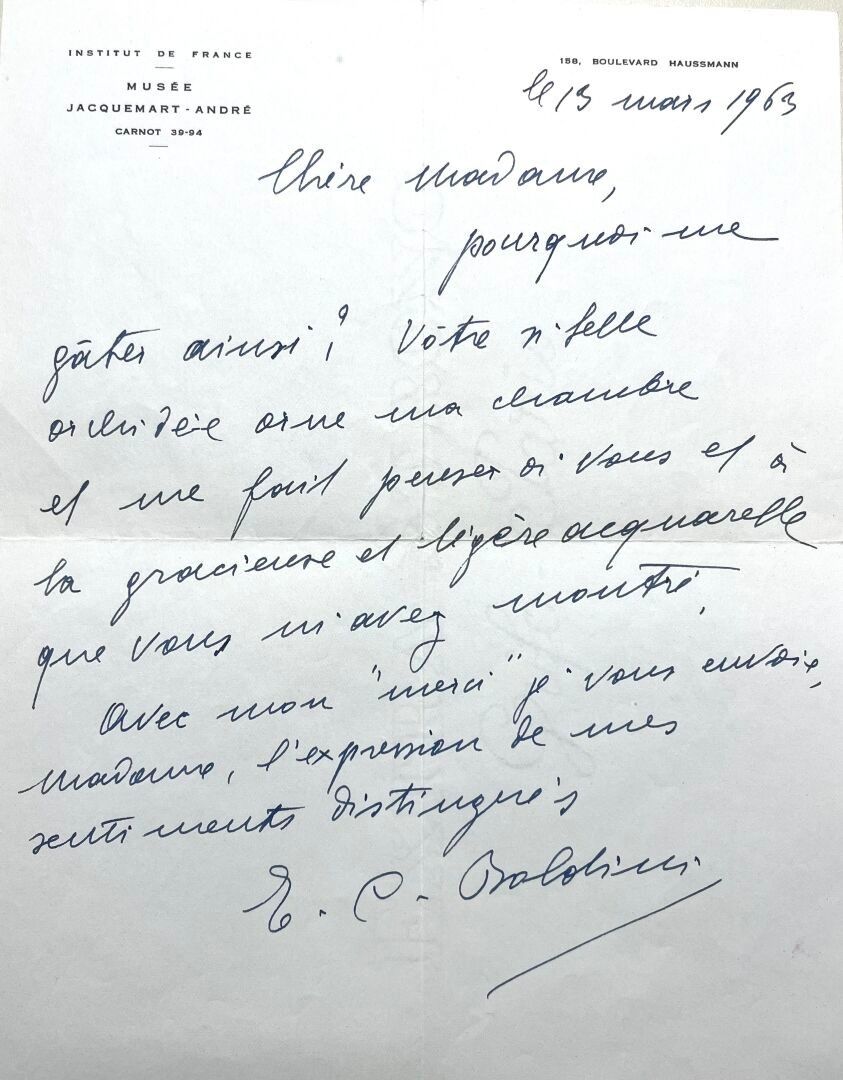 INSTITUT DE FRANCE
MUSÉE
JACQUEMART-ANDRÉ
CARNOT 39-94
158, BOULEVARD HAUSSMANN
le 13 mars 1963
Chère Madame,
pourquoi me
gâter ainsi? Vôtre si belle
orchidée orne ma chambre
et me fait penser à vous et à
la gracieuse et légère acquarelle
que vous m'avez montré.
Avec mon "merci" je vous envoie,
Madame, l'expression de mes
sentiments distingués
E. C. Boldini